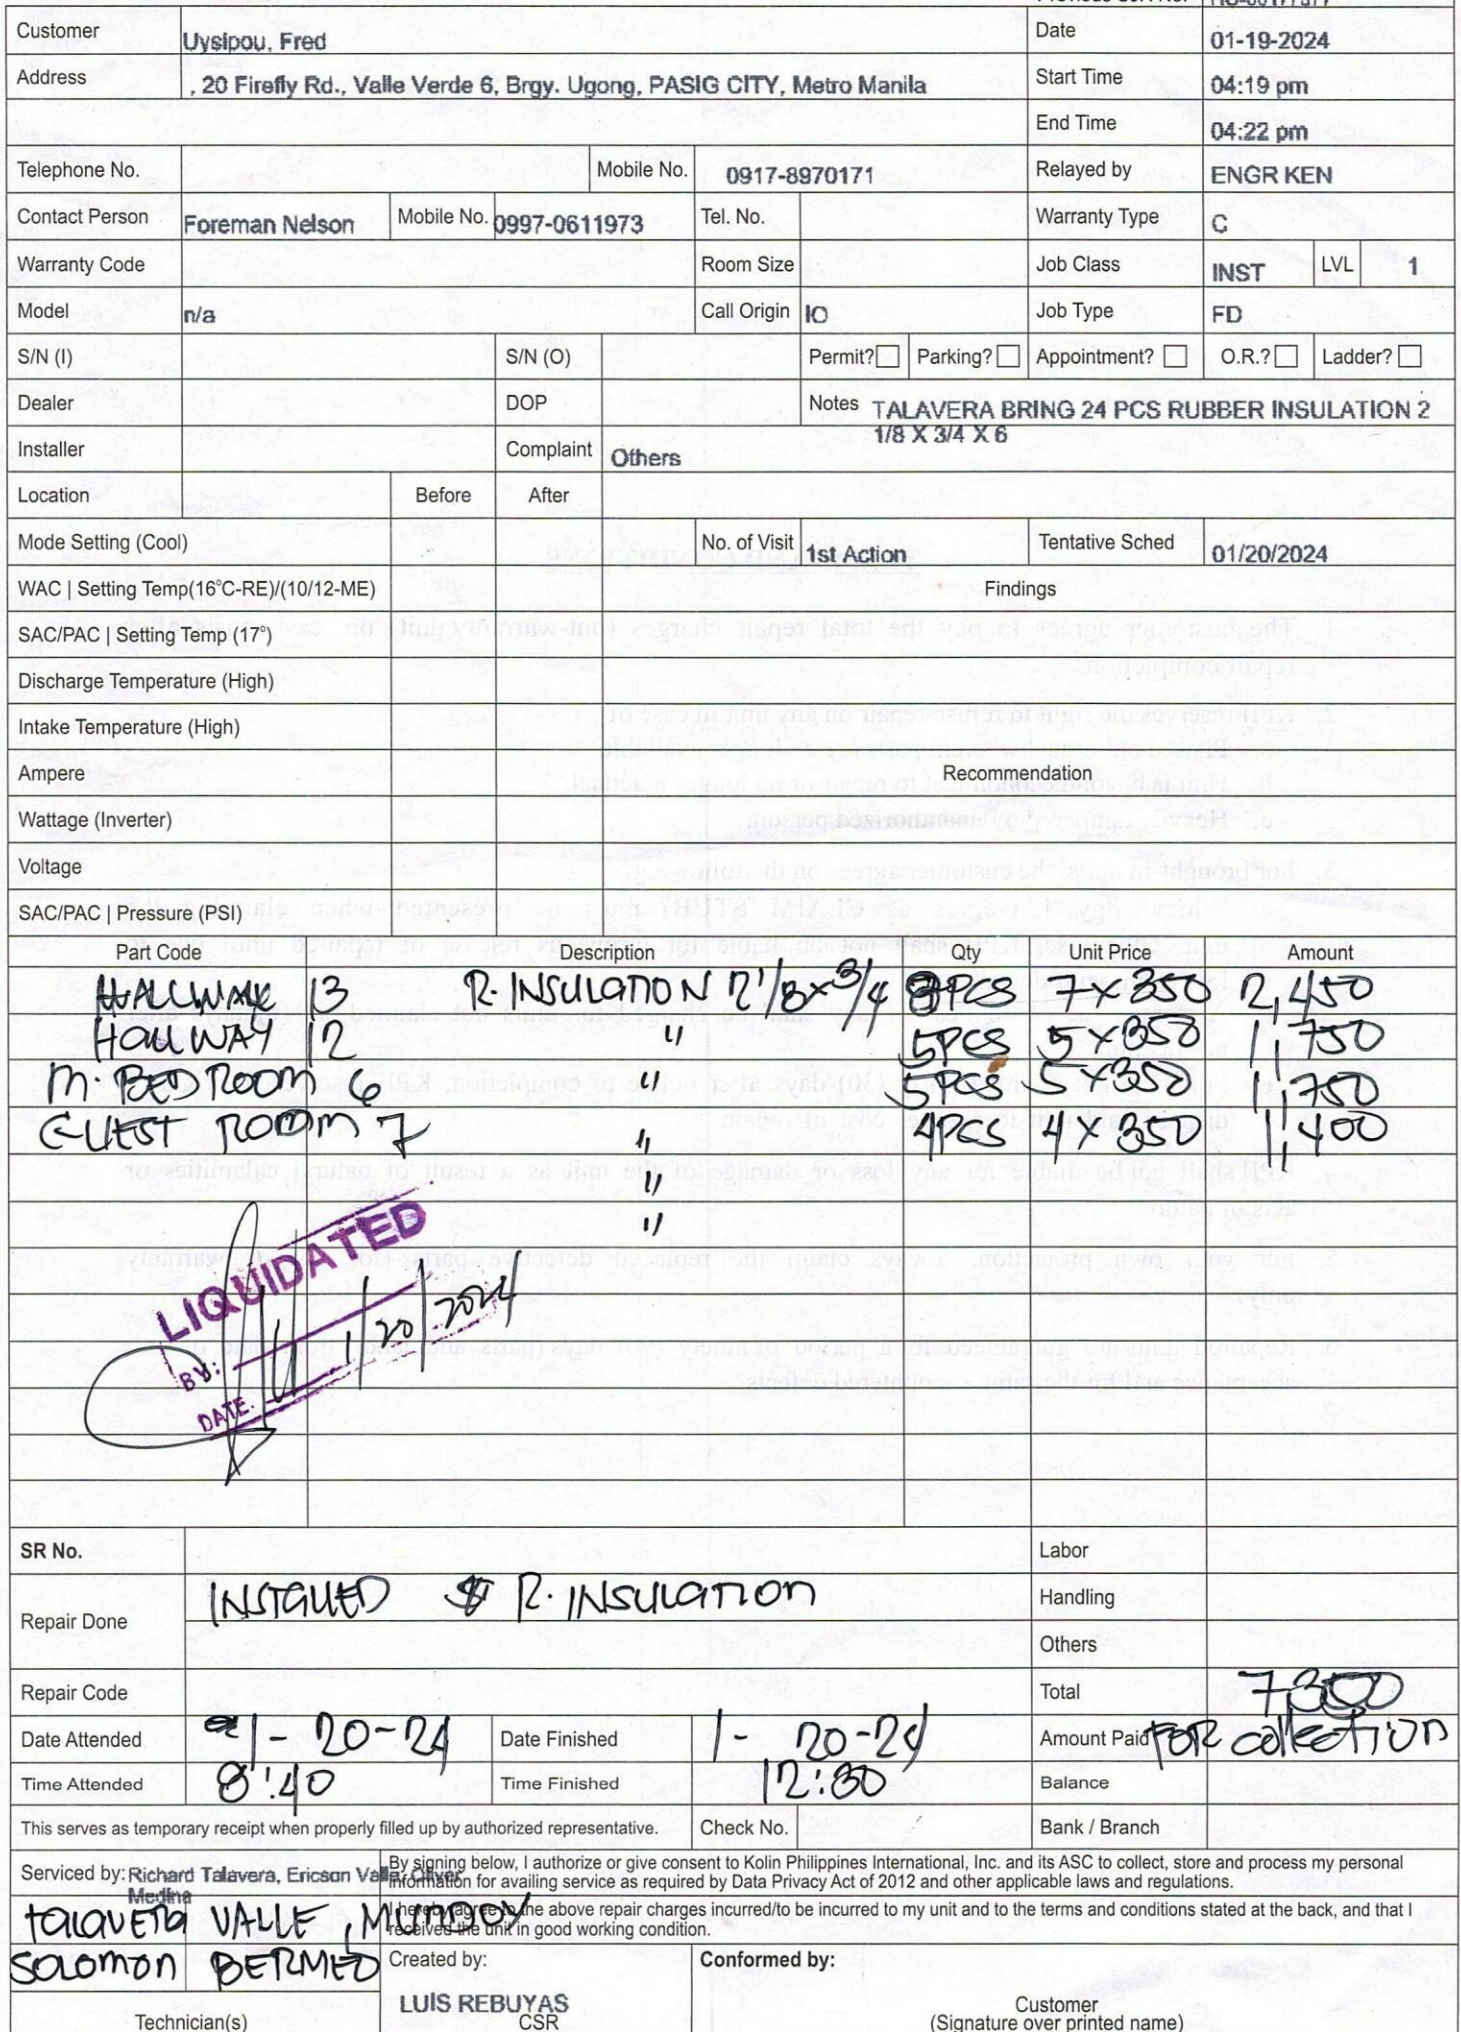 Customer Uysipou, Fred Date 01-19-2024
Address , 20 Firefly Rd., Valle Verde 6, Brgy. Ugong, PASIG CITY, Metro Manila Start Time 04:19 pm
End Time 04:22 pm
Telephone No. Mobile No. 0917-8970171 Relayed by ENGR KEN
Contact Person Foreman Nelson Mobile No. 0997-0611973 Tel. No. Warranty Type C
Warranty Code Room Size Job Class INST LVL 1
Model n/a Call Origin IO Job Type FD
S/N (I) S/N (O) Permit? Parking? Appointment? O.R.? Ladder?
Dealer DOP Notes TALAVERA BRING 24 PCS RUBBER INSULATION 2
1/8 X 3/4 X 6
Installer Complaint Others
Location Before After
Mode Setting (Cool) No. of Visit 1st Action Tentative Sched 01/20/2024
WAC | Setting Temp(16°C-RE)/(10/12-ME) Findings
SAC/PAC | Setting Temp (17°)
Discharge Temperature (High)
Intake Temperature (High)
Ampere Recommendation
Wattage (Inverter)
Voltage
SAC/PAC | Pressure (PSI)
Part Code Description Qty Unit Price Amount
HALLWAY 13 R. INSULATION 2 1/8 x 3/4 PCS 7 x 350 2,450
HALLWAY 12 " 5PCS 5 x 350 1,750
M. BED ROOM 6 " 5PCS 5 x 350 1,750
GUEST ROOM 7 " 4PCS 4 x 350 1,400
"
"
LIQUIDATED
BY:
DATE: 1/20/2024
SR No. Labor
Repair Done INSTALLED R. INSULATION Handling
Others
Repair Code Total 7,350
Date Attended 1-20-24 Date Finished 1-20-24 Amount Paid FOR collection
Time Attended 8:40 Time Finished 12:30 Balance
This serves as temporary receipt when properly filled up by authorized representative. Check No. Bank / Branch
Serviced by: Richard Talavera, Ericson Valle, Oliver
Medina
By signing below, I authorize or give consent to Kolin Philippines International, Inc. and its ASC to collect, store and process my personal
information for availing service as required by Data Privacy Act of 2012 and other applicable laws and regulations.
I hereby agree to the above repair charges incurred/to be incurred to my unit and to the terms and conditions stated at the back, and that I
received the unit in good working condition.
TALAVERA VALLE,
SOLOMON BERMEO
Created by: Conformed by:
LUIS REBUYAS
Technician(s) CSR Customer
(Signature over printed name)